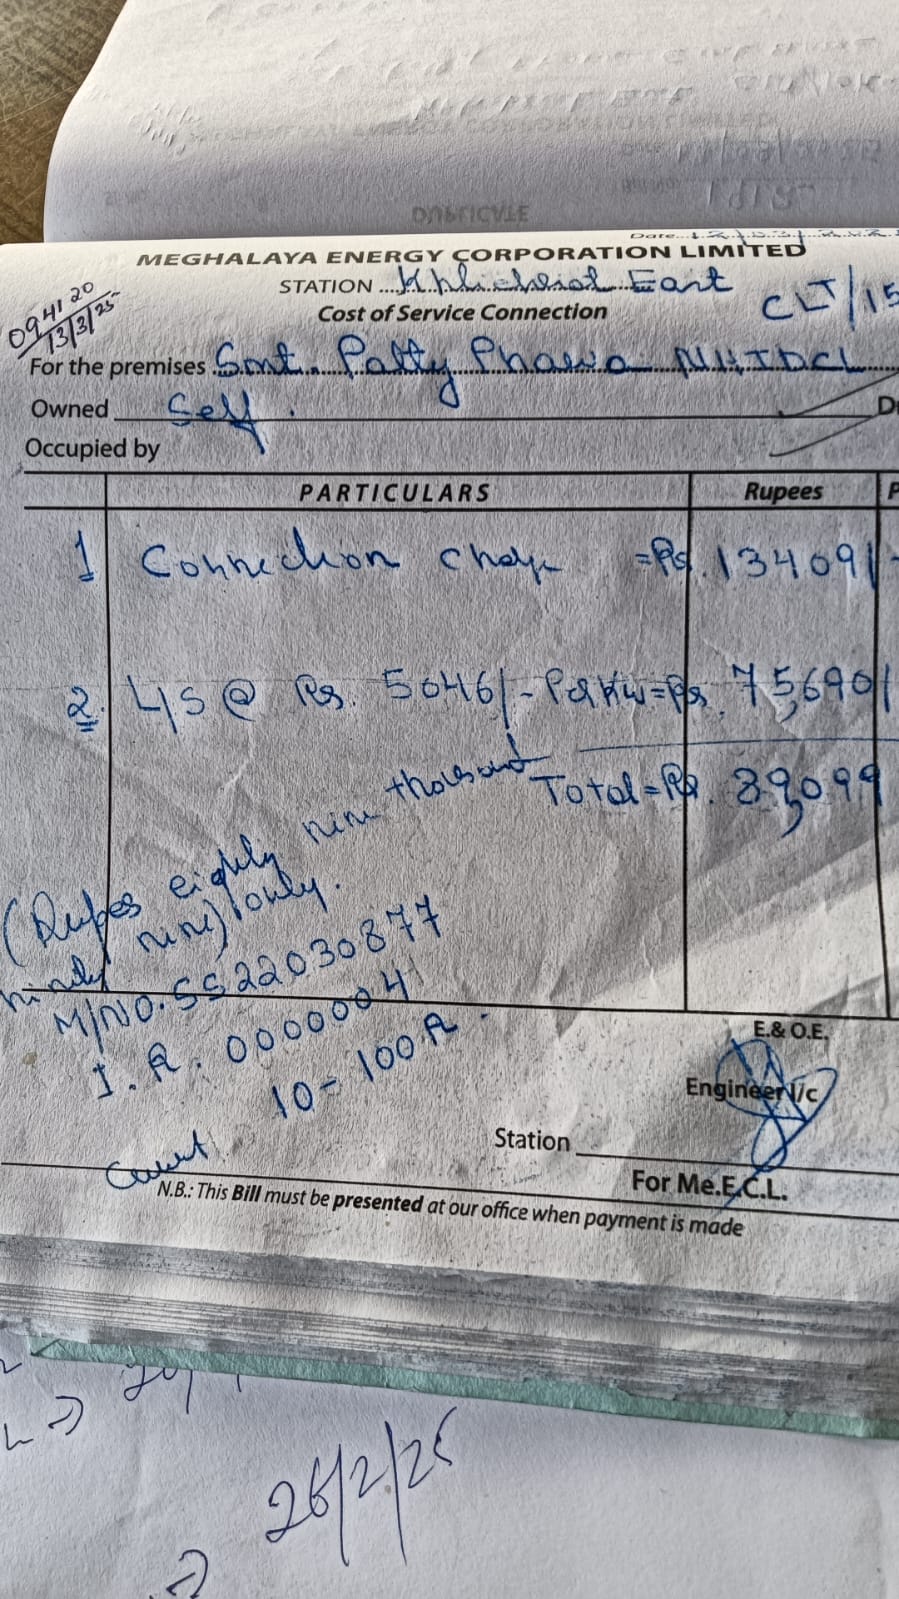 DUPLICATE
Date
MEGHALAYA ENERGY CORPORATION LIMITED
STATION Khliehriat East
CLT/15
Cost of Service Connection
094120
13/3/25
For the premises Smt. Patty Phawa NHIDCL
Owned Self.
Occupied by
PARTICULARS Rupees P
1 Connection charge =Rs. 13409/-
2. L/S @ Rs. 5046/- Per KW=Rs. 75,690/
Total=Rs. 89,099
(Rupees eighty nine thousand
ninety nine) only.
M/NO. SS22030877
I.R. 0000004
10-100A.
E.& O.E.
Engineer I/c
Station
For Me.E.C.L.
N.B.: This Bill must be presented at our office when payment is made
26/2/25